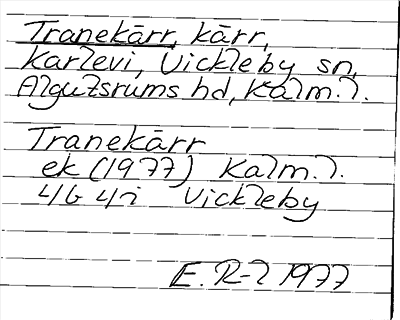 Tranekärr, kärr,
Karlevi, Vickleby sn,
Algutsrums hd, Kalm. l.
Tranekärr
ek (1977) Kalm. l.
4G 4i Vickleby
E. R-l 1977